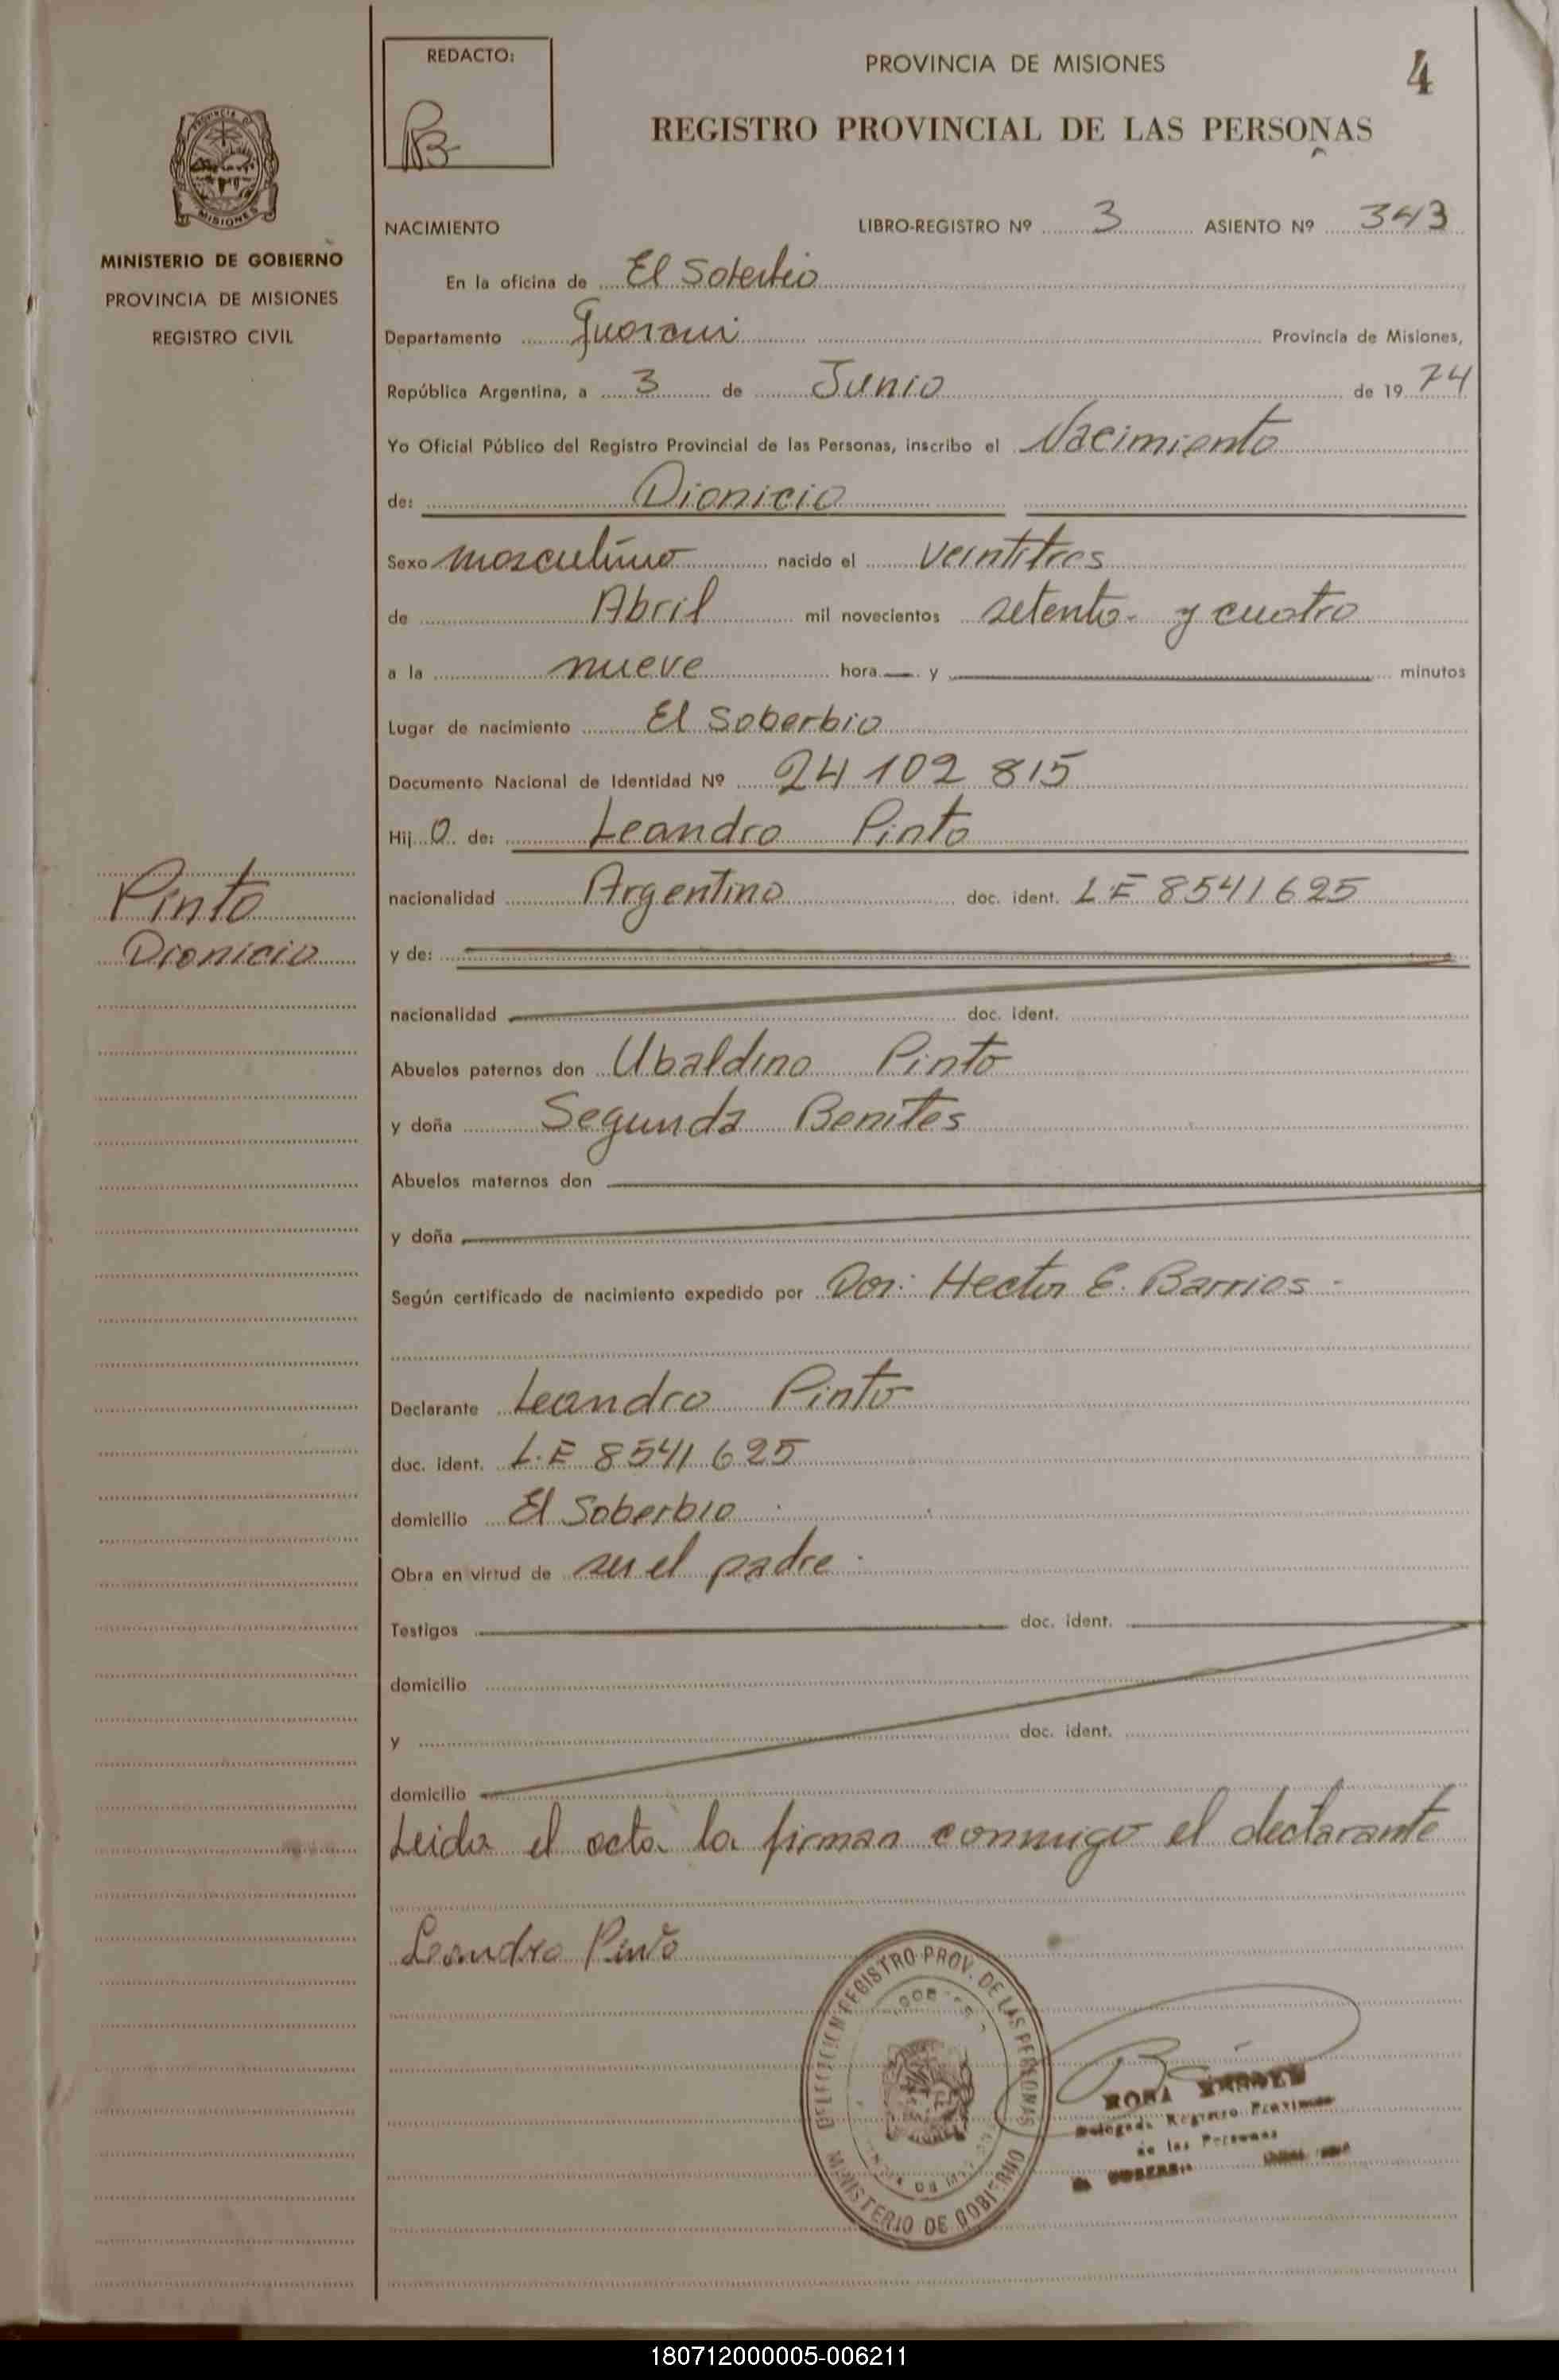 REDACTO:
PROVINCIA DE MISIONES
4
REGISTRO PROVINCIAL DE LAS PERSONAS
MISIONES
MINISTERIO DE GOBIERNO
PROVINCIA DE MISIONES
REGISTRO CIVIL
NACIMIENTO LIBRO-REGISTRO Nº 3 ASIENTO Nº 343
En la oficina de El Soberbio
Departamento Guarani Provincia de Misiones,
República Argentina, a 3 de Junio de 19 74
Yo Oficial Público del Registro Provincial de las Personas, inscribo el Nacimiento
de: Dionicio
Sexo masculino nacido el veintitres
de Abril mil novecientos setenta y cuatro
a la nueve hora y minutos
Lugar de nacimiento El Soberbio
Documento Nacional de Identidad Nº 24 102 815
Hij o de: Leandro Pinto
nacionalidad Argentino doc. ident. L.E 8541625
Pinto
Dionicio
y de:
nacionalidad doc. ident.
Abuelos paternos don Ubaldino Pinto
y doña Segunda Benites
Abuelos maternos don
y doña
Según certificado de nacimiento expedido por Dor: Hector E. Barrios
Declarante Leandro Pinto
doc. ident. L.E 8541625
domicilio El Soberbio
Obra en virtud de ser el padre
Testigos doc. ident.
domicilio
y doc. ident.
domicilio
Leida el acta la firman conmigo el declarante
Leandro Pinto
REGISTRO PROV. DE LAS PERSONAS
MINISTERIO DE GOBIERNO
ROSA
Delegada Registro Provincial
de las Personas
180712000005-006211